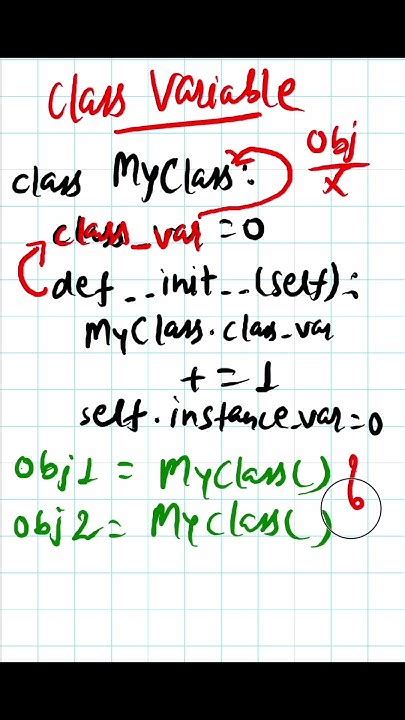 Class Variable
obj
x
class MyClass:
class_var = 0
def __init__(self):
MyClass.class_var
+= 1
self.instance_var=0
obj1 = MyClass()
obj2 = MyClass()